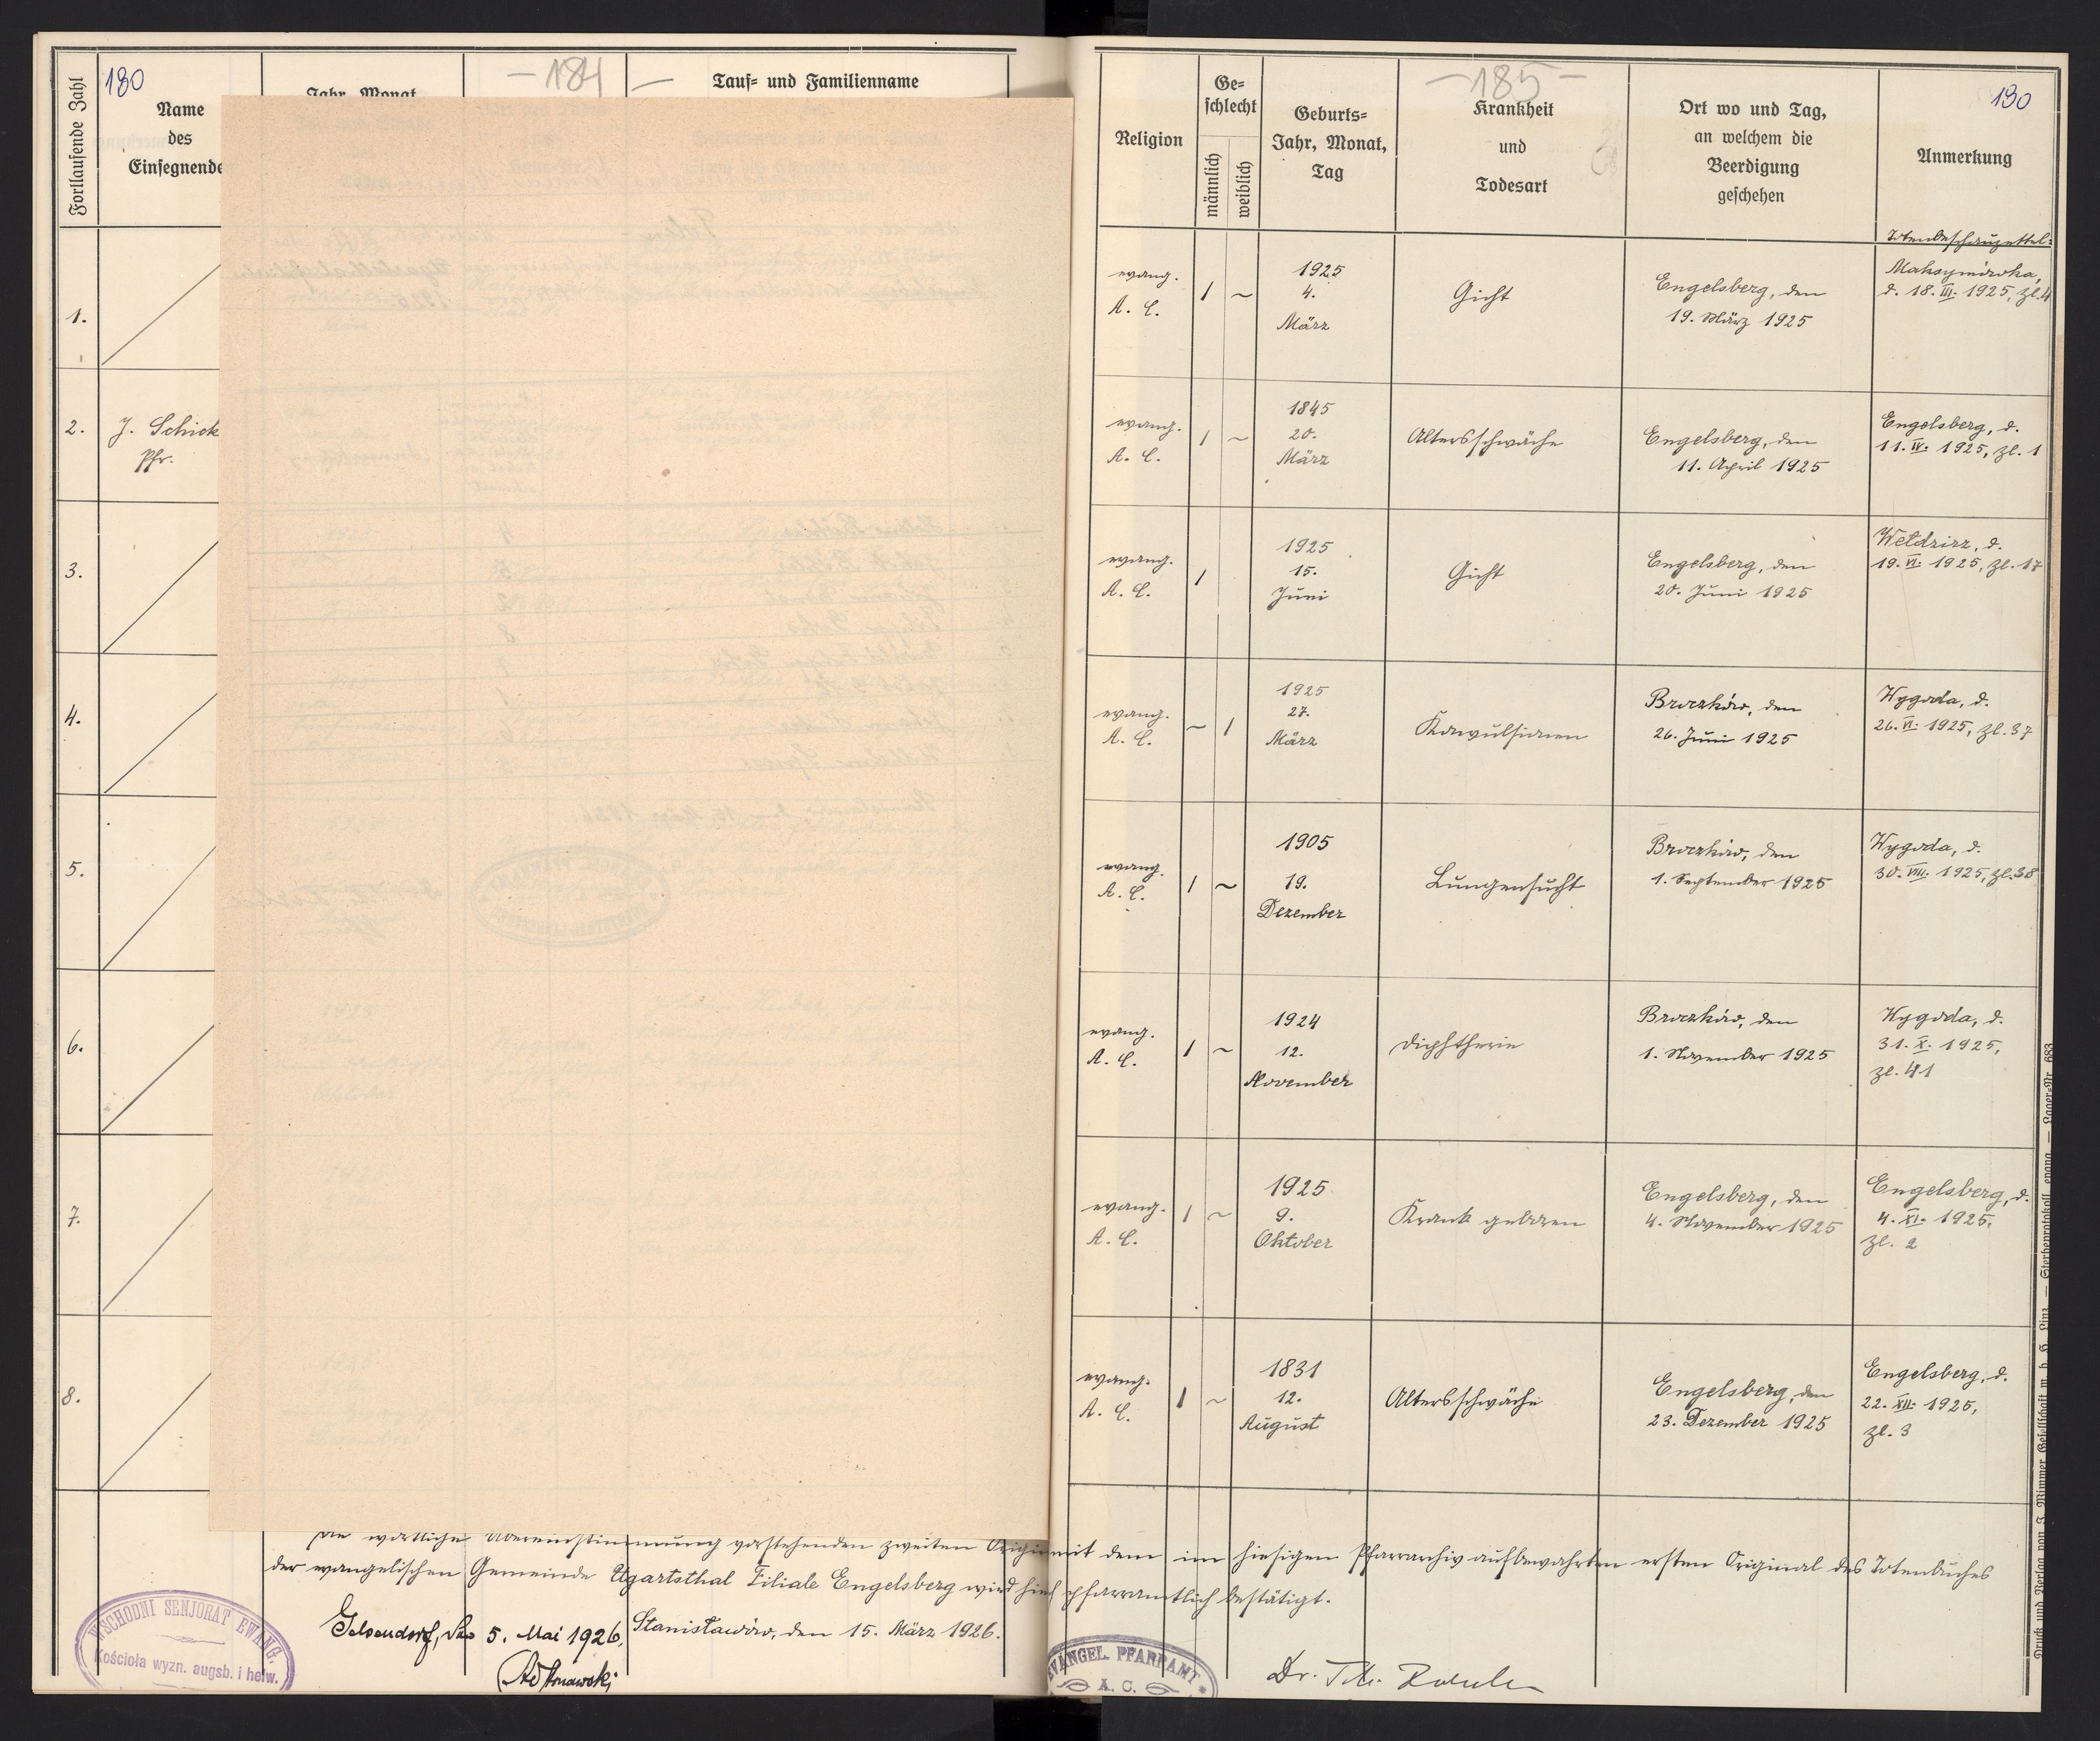 180
— 184 —
Fortlaufende Zahl
Name
des
Einsegnende
Jahr, Monat
Tauf- und Familienname
1.
2.
J. Schick
Pfr.
3.
4.
5.
6.
7.
8.
— 185 —
130
Religion
Ge-
schlecht
männlich
weiblich
Geburts-
Jahr, Monat,
Tag
Krankheit
und
Todesart
Ort wo und Tag,
an welchem die
Beerdigung
geschehen
Anmerkung
Totenbeschauzettel:
evang.
A. C.
1 ~
1925
4.
März
Gicht
Engelsberg, den
19. März 1925
Maksymówka,
d. 18. III. 1925, Zl. 4
evang.
A. C.
1 ~
1845
20.
März
Altersschwäche
Engelsberg, den
11. April 1925
Engelsberg, d.
11. IV. 1925, Zl. 1
evang.
A. C.
1
1925
15.
Juni
Gicht
Engelsberg, den
20. Juni 1925
Wełdzirz, d.
19. VI. 1925, Zl. 17
evang.
A. C.
~ 1
1925
27.
März
Konvulsionen
Broczków, den
26. Juni 1925
Wygoda, d.
26. VI. 1925, Zl. 37
evang.
A. C.
1 ~
1905
19.
Dezember
Lungensucht
Broczków, den
1. September 1925
Wygoda, d.
30. VIII. 1925, Zl. 38
evang.
A. C.
1 ~
1924
12.
November
Diphtherie
Broczków, den
1. November 1925
Wygoda, d.
31. X. 1925,
Zl. 41
evang.
A. C.
1 ~
1925
9.
Oktober
Krank geboren
Engelsberg, den
4. November 1925
Engelsberg, d.
4. XI. 1925,
Zl. 2
evang.
A. C.
1 ~
1831
12.
August
Altersschwäche
Engelsberg, den
23. Dezember 1925
Engelsberg, d.
22. XII. 1925,
Zl. 3
Die wörtliche Übereinstimmung vorstehenden zweiten Origin mit dem im hiesigen Pfarrarchiv aufbewahrten ersten Original des Totenbuches
der evangelischen Gemeinde Ugartsthal Filiale Engelsberg wird hie pfarramtlich bestätigt.
Gelsendorf, den 5. Mai 1926.
Stanisławów, den 15. März 1926.
WSCHODNI SENJORAT EWANG.
Kościoła wyzn. augsb. i helw.
EVANGEL. PFARRAMT
A. C.
Dr.
Druck und Verlag von J. Wimmer Gesellschaft m. b. H. Linz. — Sterbeprotokoll, evang. — Lager-Nr. 683